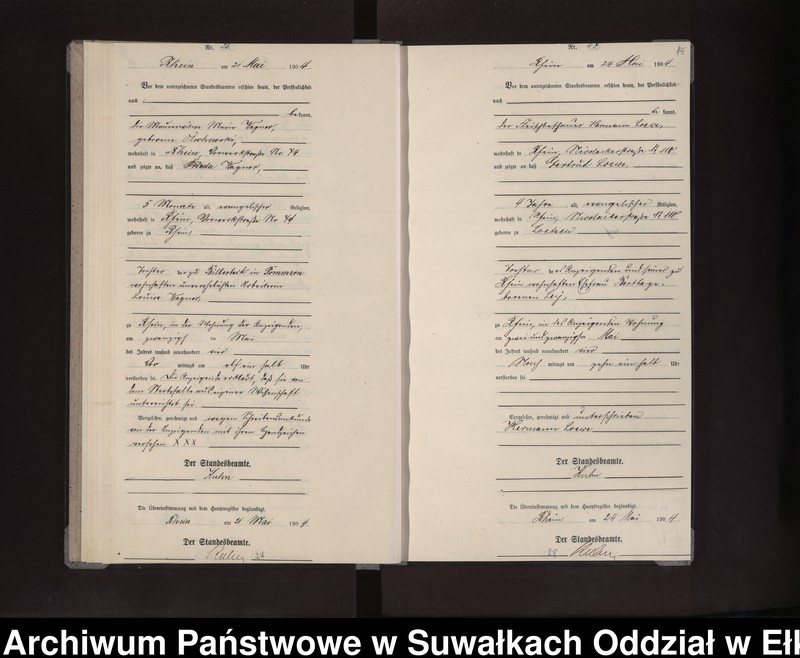 Nr. 26
Rhein am 21 Mai 1904
Vor dem unterzeichneten Standesbeamten erschien heute, der Persönlichkeit
nach
bekannt,
die Maurerwitwe Marie Wegner,
geborene
wohnhaft in Rhein, Vorwerkstraße Nr. 74
und zeigte an, daß Frieda Wegner,
5 Monate a. evangelischer Religion,
wohnhaft in Rhein, Vorwerkstraße Nr. 74
geboren zu Rhein,
Tochter der zu in Pommern
wohnhaften unverehelichten Arbeiterin
Louise Wegner,
zu Rhein, in der Wohnung der Anzeigenden,
am zwanzigsten Mai
des Jahres tausend neunhundert vier
Vor mittags um elf ein halb Uhr
verstorben sei. Die Anzeigende erklärt, daß sie von
dem Sterbefalle aus eigener Wissenschaft
unterrichtet sei
Vorgelesen, genehmigt und wegen Schreibensunkunde
von der Anzeigenden mit ihren Handzeichen
versehen X X X
Der Standesbeamte.
Kuhn
Die Übereinstimmung mit dem Hauptregister beglaubigt.
Rhein am 21 Mai 1904
Der Standesbeamte.
Kuhn
Rhein am 24 Mai 1904
Vor dem unterzeichneten Standesbeamten erschien heute, der Persönlichkeit
nach
bekannt,
der Fleischbeschauer Hermann Loewe,
wohnhaft in Rhein, Nicolaikerstraße
und zeigte an, daß Gertrud Loewe
4 Jahre a. evangelischer Religion,
wohnhaft in Rhein, Nicolaikerstraße
geboren zu Loetzen
Tochter des Anzeigenden und seiner zu
Rhein wohnhaften Ehefrau ge-
borenen
zu Rhein, in des Anzeigenden Wohnung
am zwei und zwanzigsten Mai
des Jahres tausend neunhundert vier
Nach mittags um zehn ein halb Uhr
verstorben sei.
Vorgelesen, genehmigt und unterschrieben
Hermann Loewe
Der Standesbeamte.
Kuhn
Die Übereinstimmung mit dem Hauptregister beglaubigt.
Rhein am 24 Mai 1904
Der Standesbeamte.
Kuhn
Archiwum Państwowe w Suwałkach Oddział w Ełk